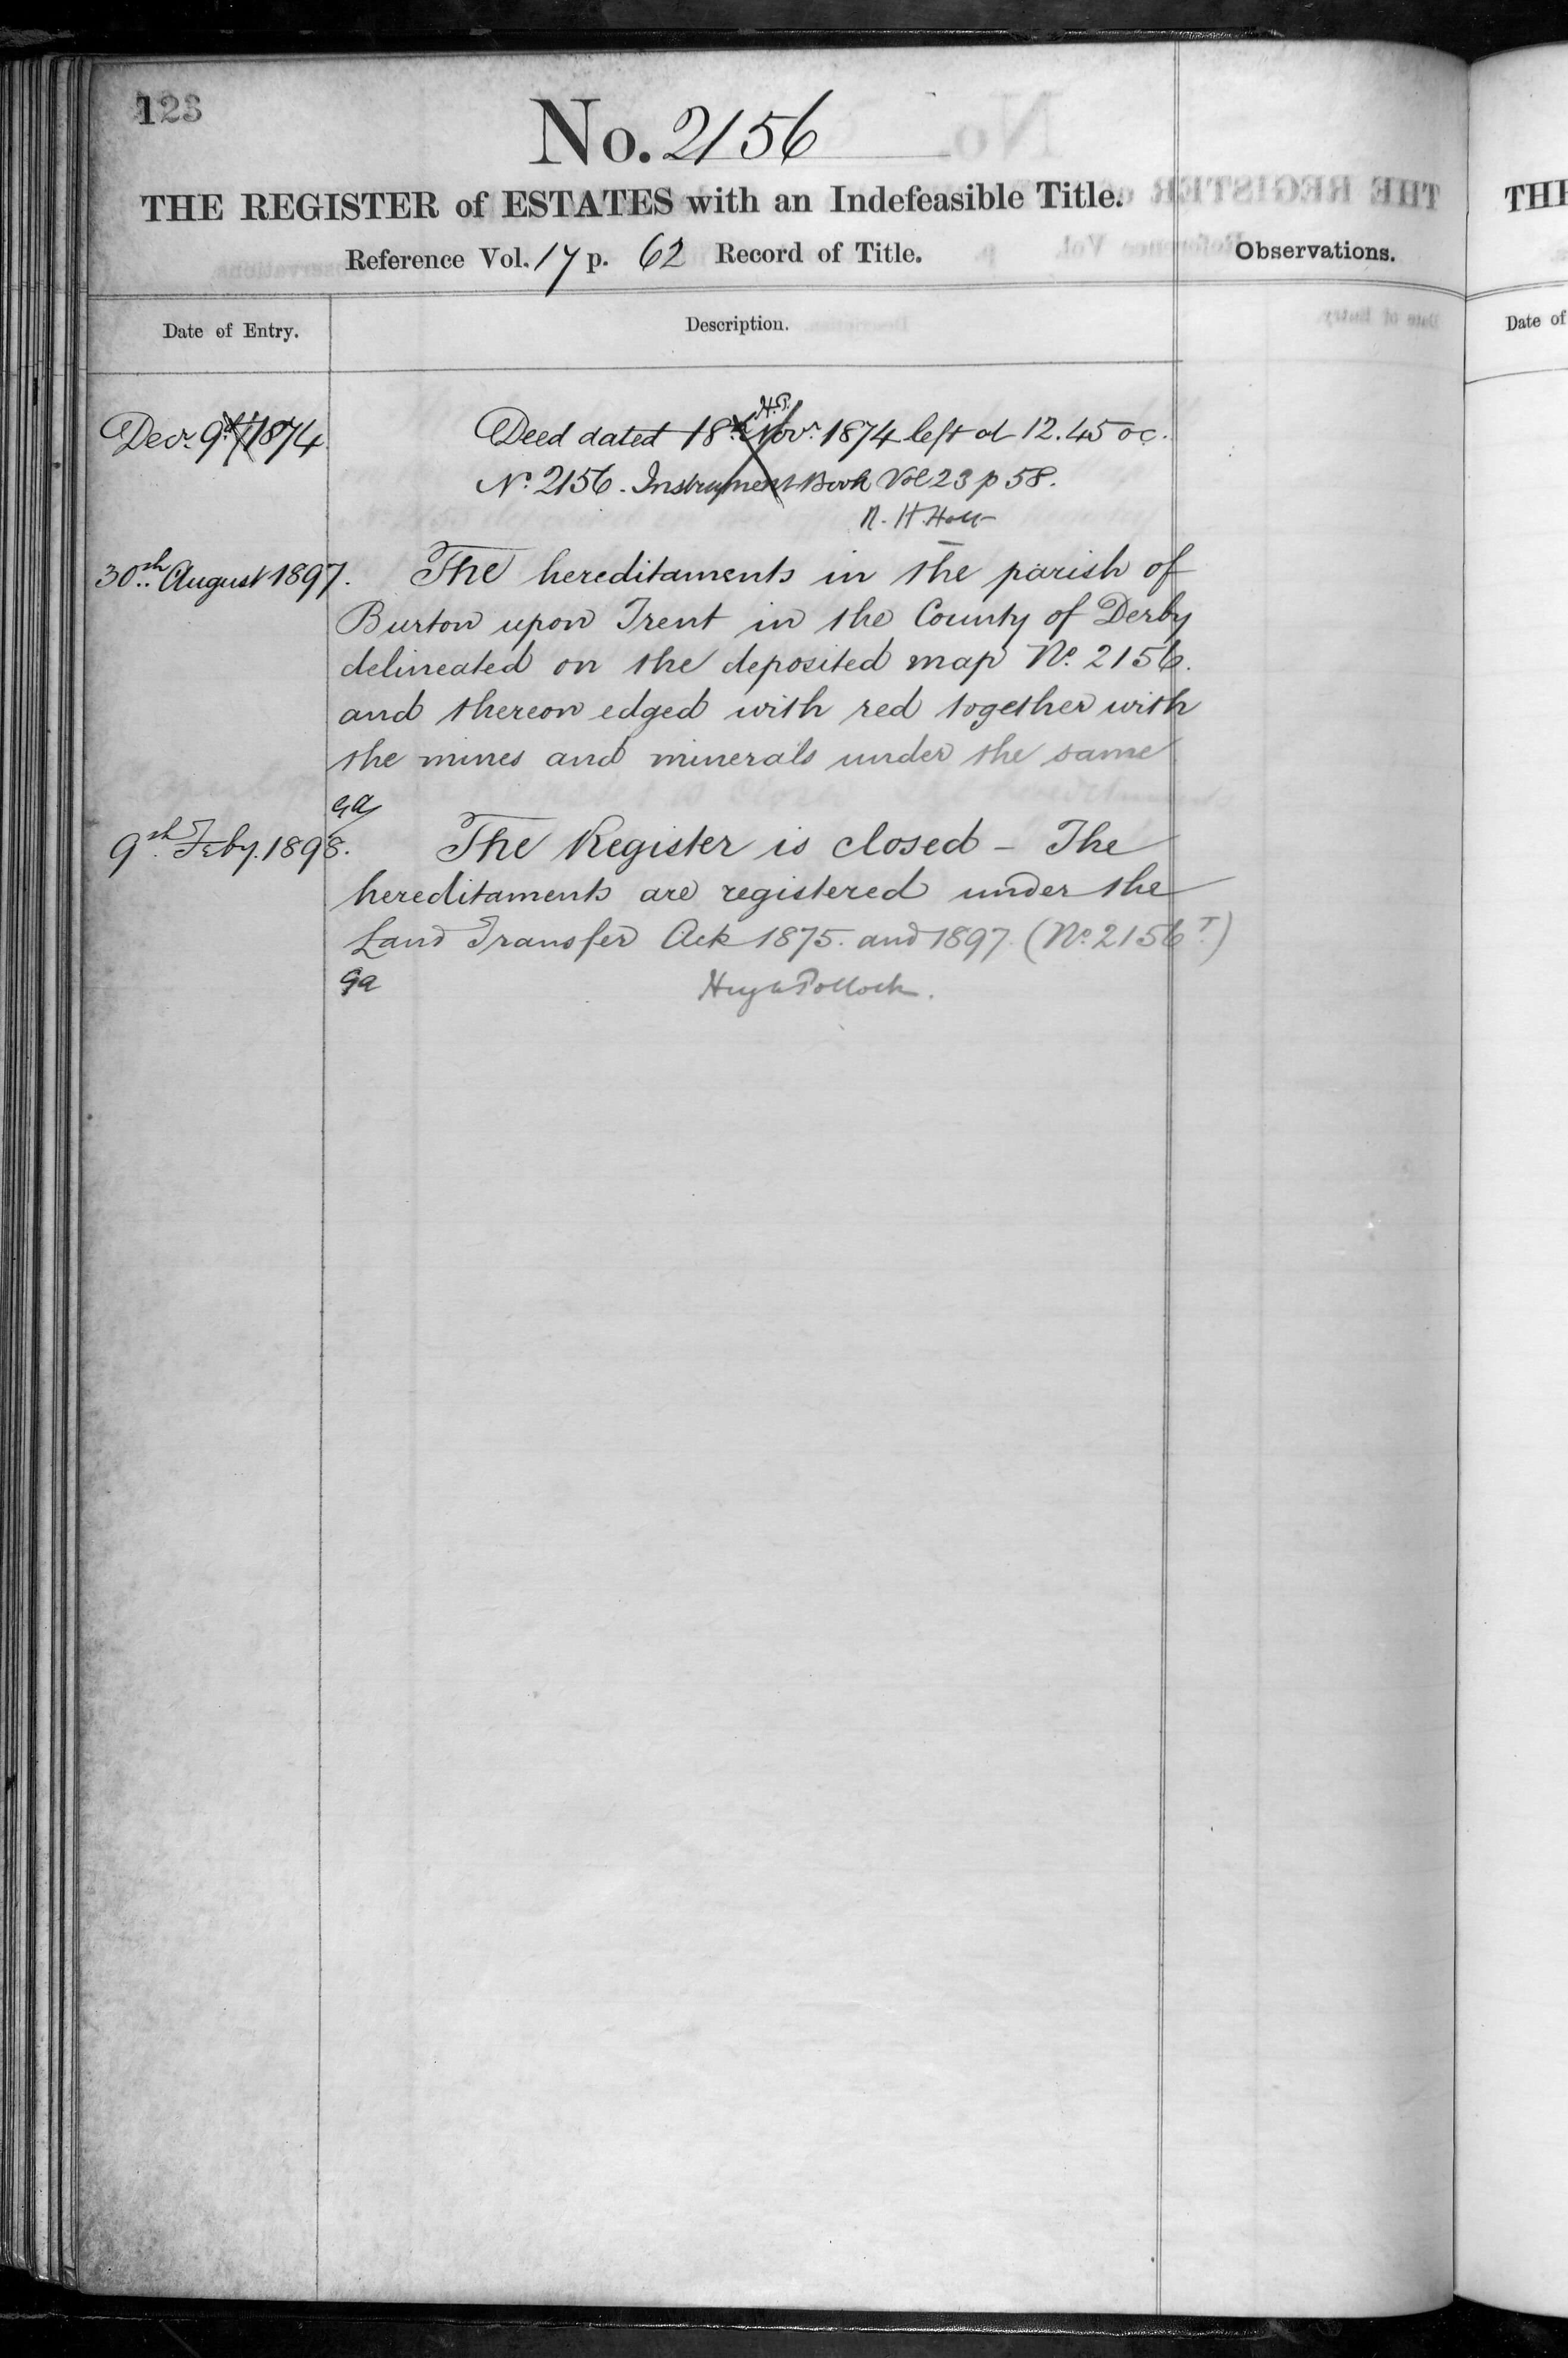 123
No. 2156
THE REGISTER of ESTATES with an Indefeasible Title.
Reference Vol. 17 p. 62 Record of Title.
Observations.
Date of Entry.
Description.
Decr. 9th 1874
H.P.
Deed dated 18th Novr. 1874 left at 12.45 oc.
No. 2156. Instrument Book Vol 23 p 58.
R. H. Holt
30th August 1897. The hereditaments in the parish of
Burton upon Trent in the County of Derby
delineated on the deposited map No. 2156.
and thereon edged with red together with
the mines and minerals under the same
ga
9th Feby. 1898. The Register is closed - The
hereditaments are registered under the
Land Transfer Acts 1875. and 1897. (No. 2156 T.)
ga
Hugh Pollock.
THE
Date of